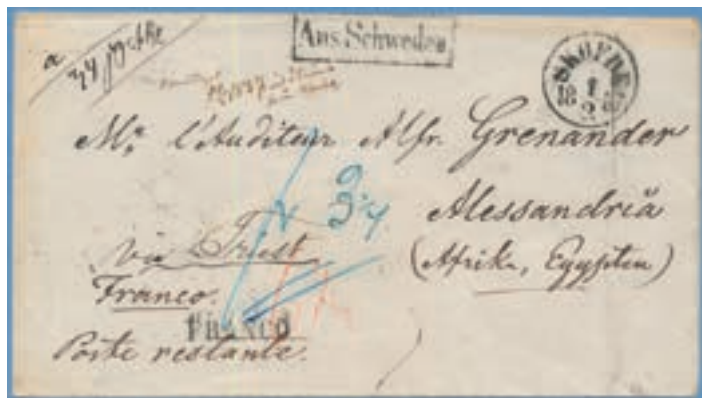 a
34
Aus Schweden
SKÖFDE
1
18
2
Mr. l'Auditeur Alfr. Grenander
Alessandria
(Afrika, Egypten)
via Triest
Franco.
FRANCO
Poste restante.